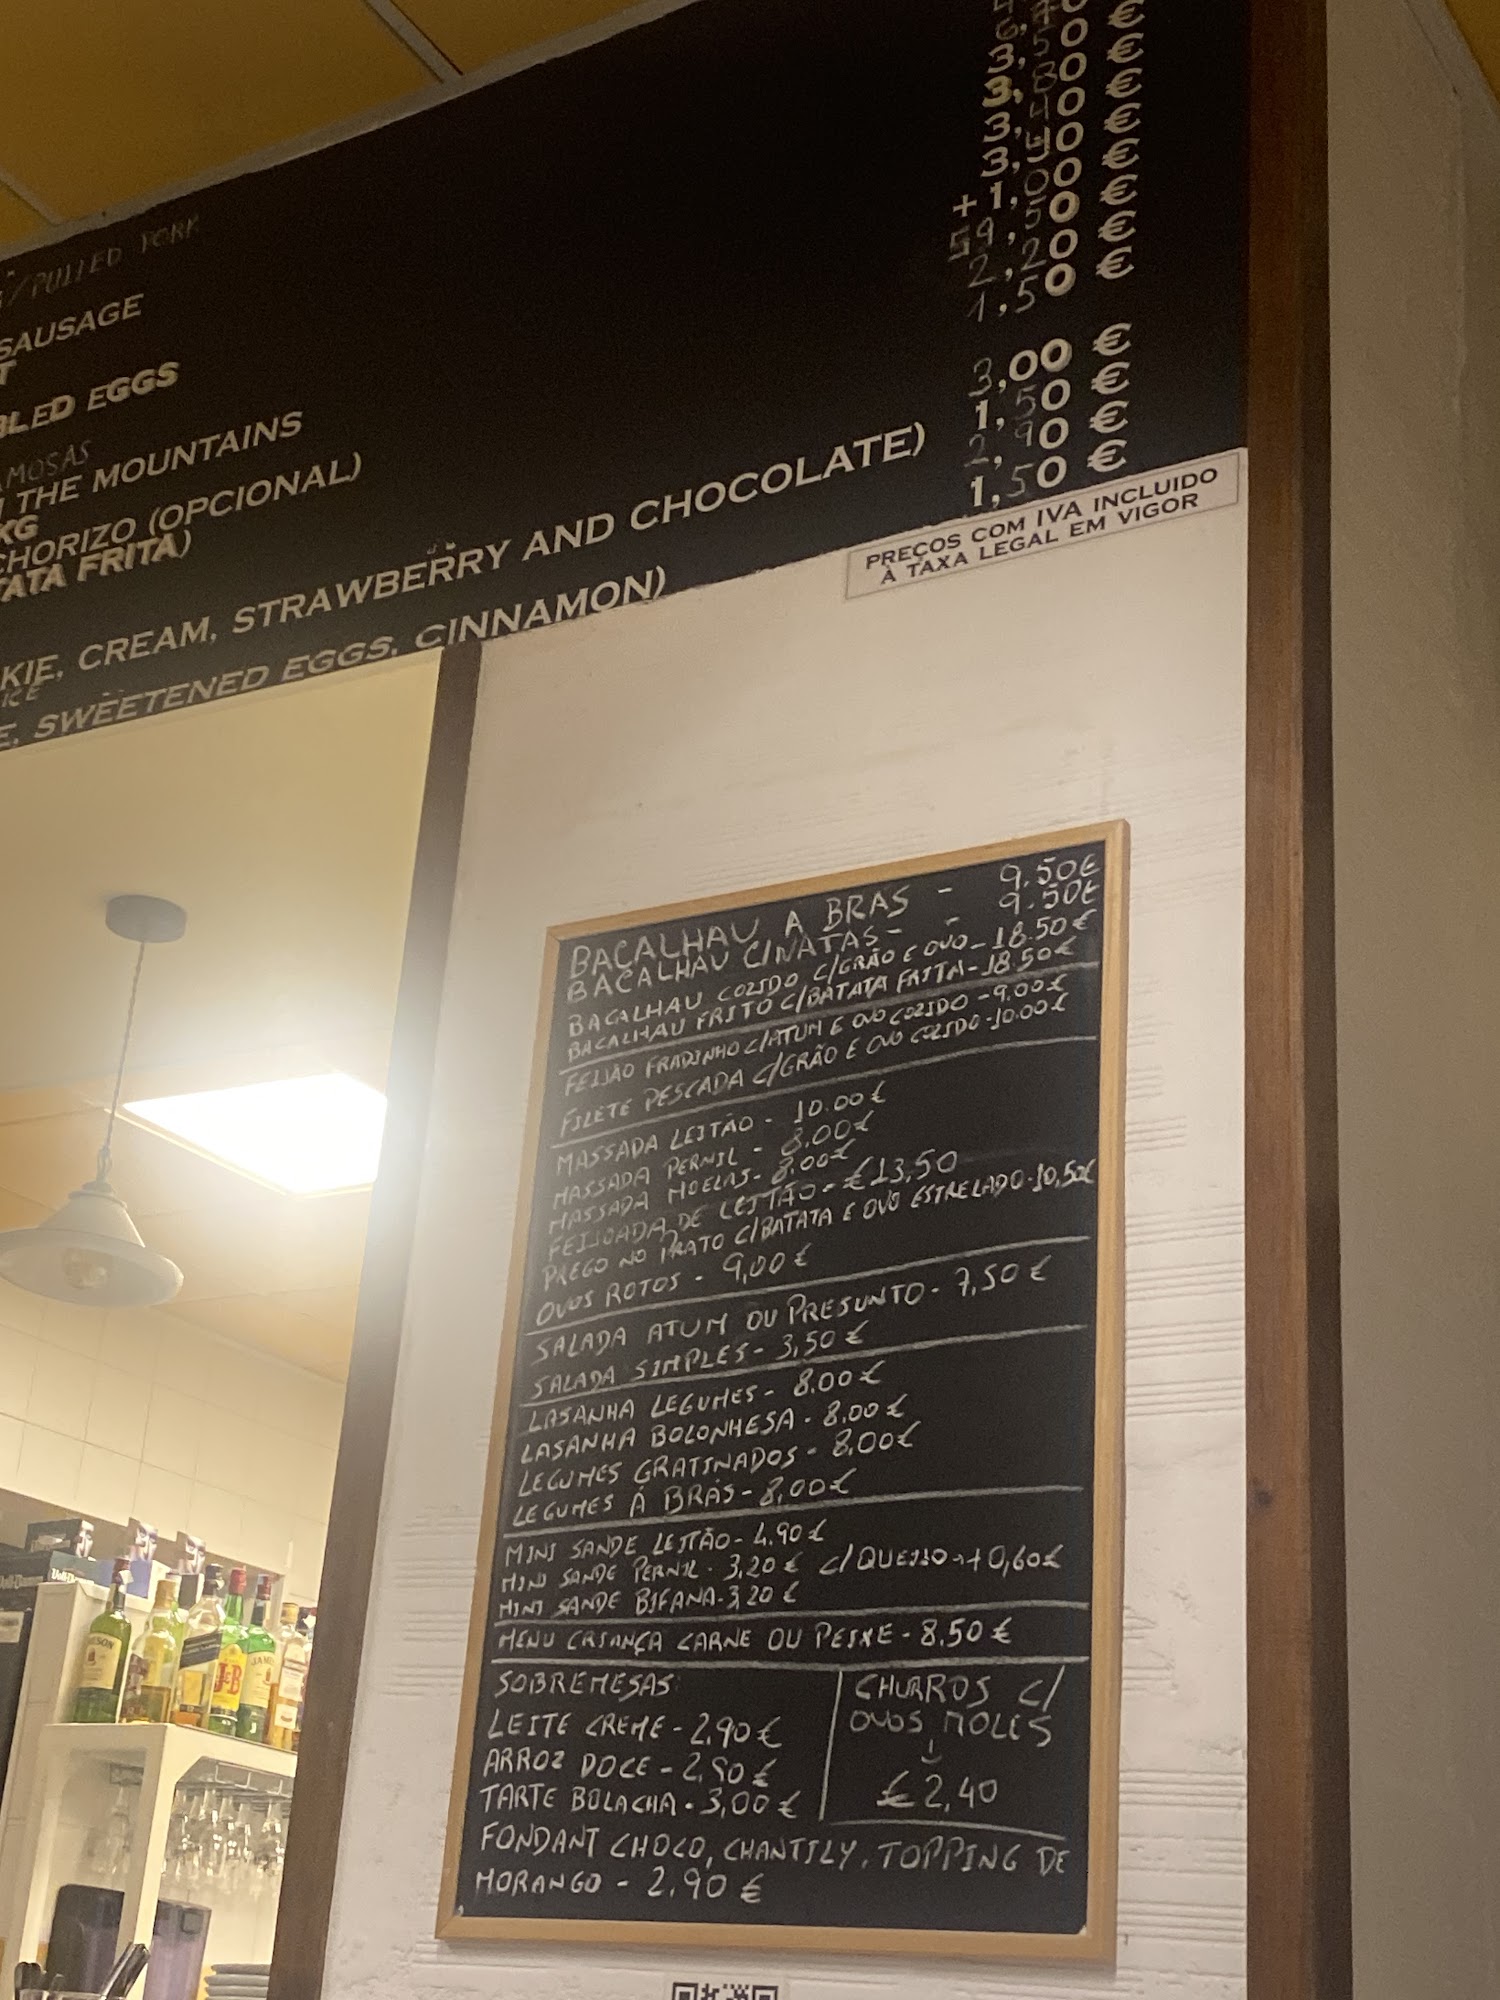 /PULLED PORK
SAUSAGE
BLED EGGS
AMOSAS
THE MOUNTAINS
KG
CHORIZO (OPCIONAL)
TATA FRITA)
KIE, CREAM, STRAWBERRY AND CHOCOLATE)
ICE
E, SWEETENED EGGS, CINNAMON)
+1,00 €
2,20 €
1,50 €
3,00 €
1,50 €
2,90 €
1,50 €
PREÇOS COM IVA INCLUIDO
À TAXA LEGAL EM VIGOR
BACALHAU A BRÁS - 9.50€
BACALHAU C/NATAS - - 9.50€
BACALHAU COZIDO C/GRÃO E OVO - 18.50€
BACALHAU FRITO C/BATATA FRITA - 18.50€
FEIJÃO FRADINHO C/ATUM E OVO COZIDO - 9.00€
FILETE PESCADA C/GRÃO E OVO COZIDO - 10.00€
MASSADA LEITÃO - 10.00€
MASSADA PERNIL - 8.00€
MASSADA MOELAS - 8.00€
FEIJOADA DE LEITÃO - €13,50
PREGO NO PRATO C/BATATA E OVO ESTRELADO - 10,50€
OVOS ROTOS - 9,00€
SALADA ATUM OU PRESUNTO - 7,50€
SALADA SIMPLES - 3,50€
LASANHA LEGUMES - 8.00€
LASANHA BOLONHESA - 8,00€
LEGUMES GRATINADOS - 8,00€
LEGUMES Á BRÁS - 8,00€
MINI SANDE LEITÃO - 4.90€
MINI SANDE PERNIL - 3,20€ C/QUEIJO → +0,60€
MINI SANDE BIFANA - 3,20€
MENU CRIANÇA CARNE OU PEIXE - 8.50€
SOBREMESAS:
LEITE CREME - 2,90€
ARROZ DOCE - 2,90€
TARTE BOLACHA - 3,00€
CHURROS C/
OVOS MOLES
€2,40
FONDANT CHOCO, CHANTILY, TOPPING DE
MORANGO - 2.90€
JAMESON
J&B